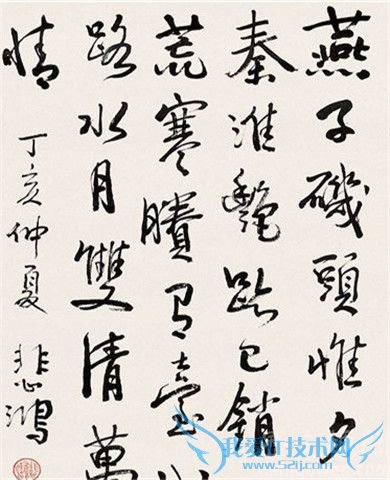 燕子磯頭惟夕
秦淮艷跡已銷
荒寒賸有臺
路水月雙清萬
情
丁亥仲夏 悲鴻
我爱IT技术网
www.52ij.com